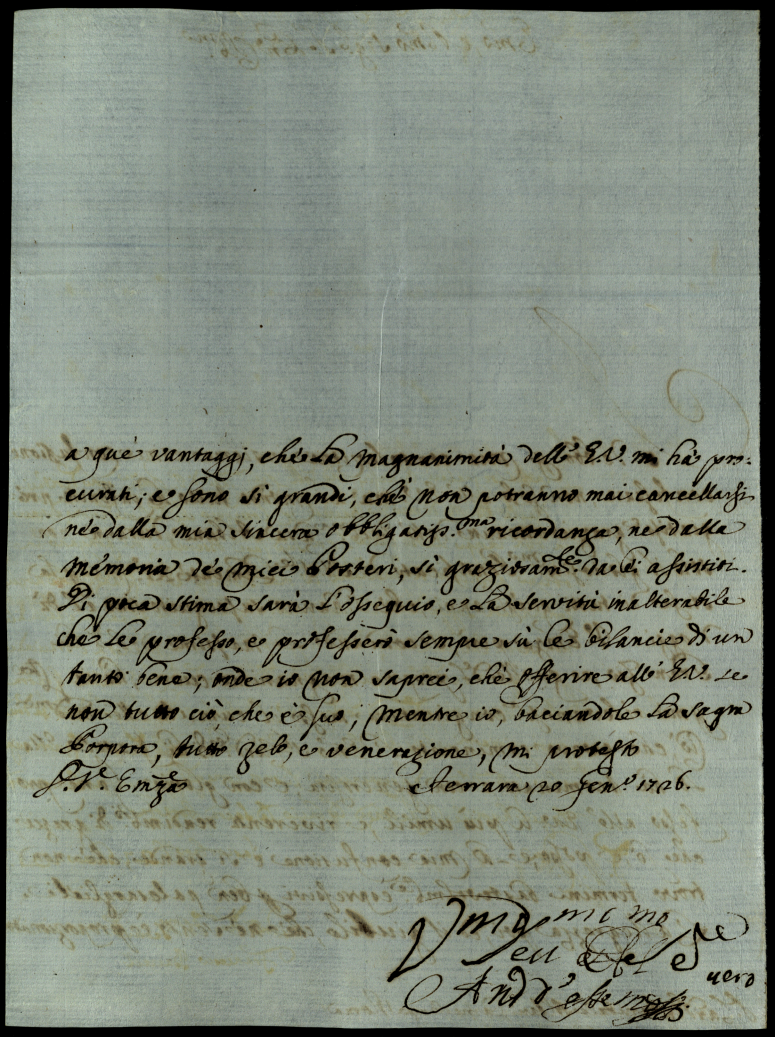 a quei vantaggj, che la magnanimità dell' E.V. mi ha pro-
curati; e sono sì grandi, che non potranno mai cancellarsi
nè dalla mia sincera obbligatiss.ma ricordanza, ne dalla
memoria de miei Posteri, sì graziosam.te da Lei assistiti.
Di poca stima sarà l'ossequio, e la servitù inalterabile
che le professo, e professerò sempre sù le bilancie di un
tanto bene; onde io non saprei, che offerire all' E.V. se
non tutto ciò, che è suo; mentre io, baciandole la sagra
Porpora, tutto zelo, e venerazione, mi protesto
Ferrara 20 Gen.o 1726.